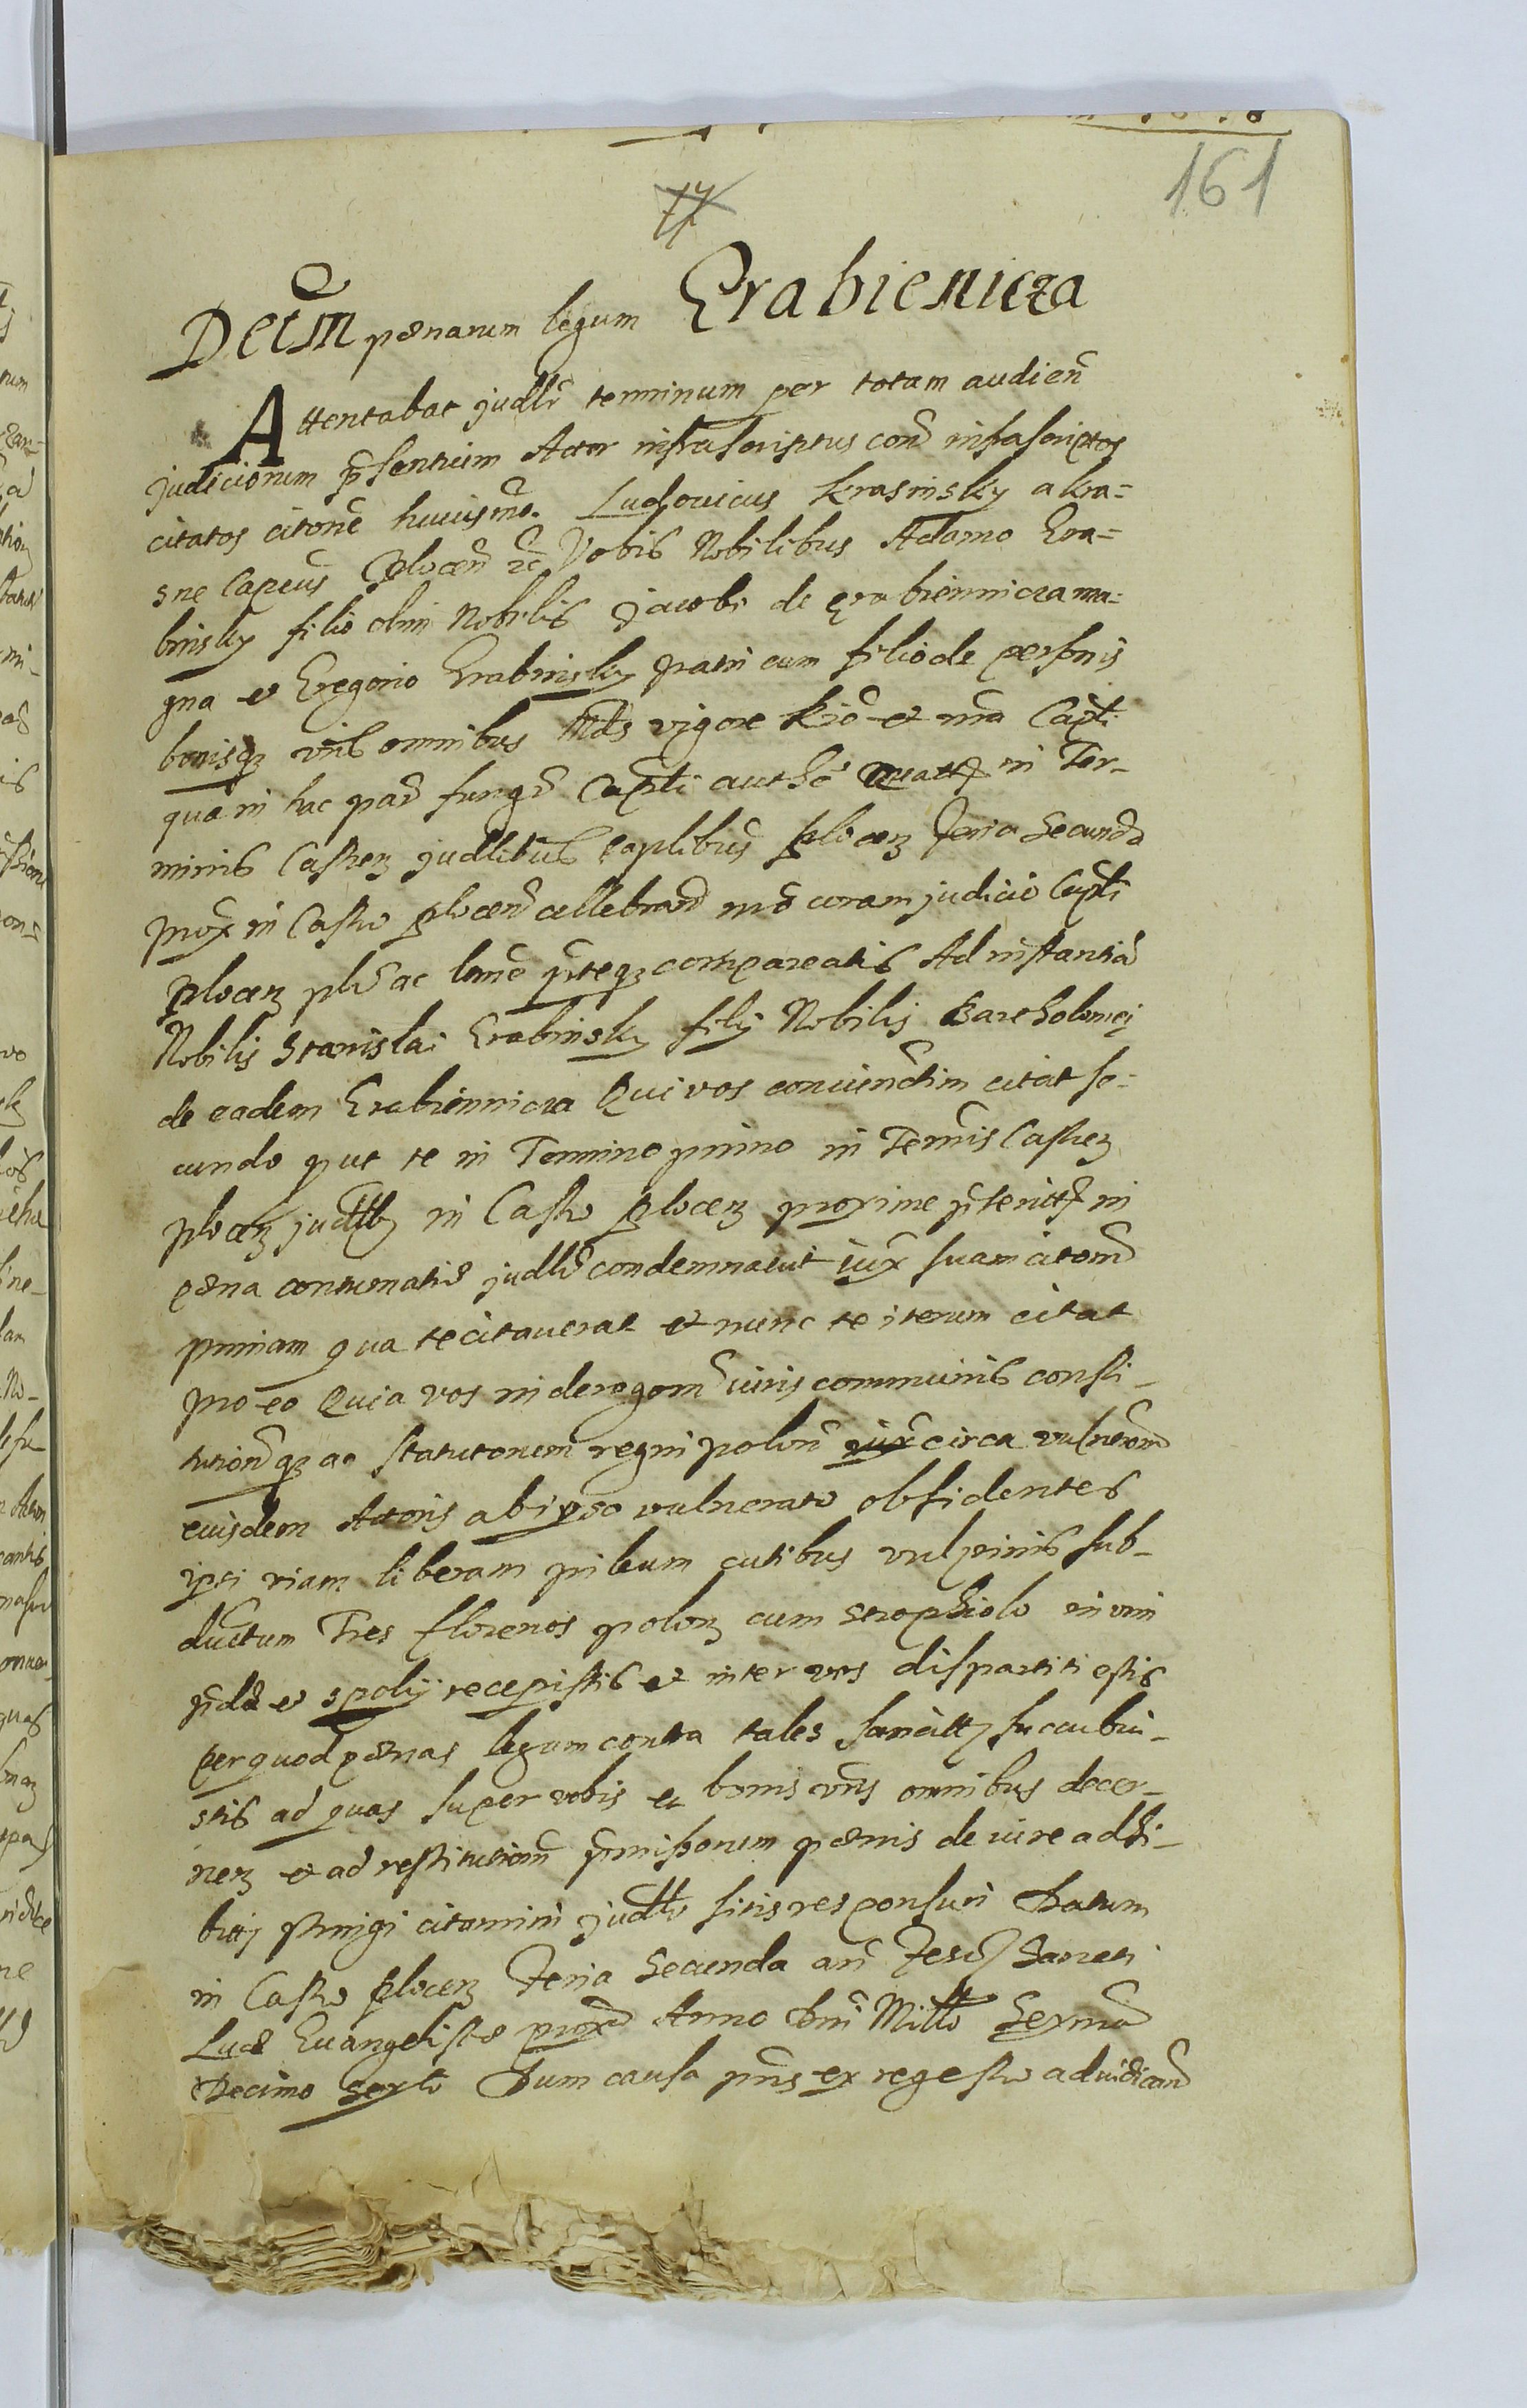 161
Decm̃ pænarum legum Grabienicza
Attentabat judlr̃ terminum per totam audieñ
judiciorum p̃sentium Actor infrascriptus cont̃ infrascriptos
citatos citoñe huiusm̃o. Ludovicus Krasinsky a Kra=
sne Capeus̃ Plocen̄ &c Vobis Nobilibus Adamo Gra=
binsky filio olim Nobilis Jacobi de Grabiennicza ma=
gna et Gregorio Grabinsky patri cum filio de persoñis
bonisq; vr̃is omnibus Mds vigore R̃io et mea Cap̃li
qua in hac par̃ fungor̃ Cap̃li autho͂ quatt9 in Ter-
minis Castren judlibus Caplibus Plocen feria Secunda
prox̃ in Castro Plocen̄ cellebrand̃ mõ coram judicio Cap̃li
Plocen pl̃r ac lim̃e p̃teq; compareatis Ad instantiã
Nobilis Stanislai Grabinsky filij Nobilis Bartholomej
de eadem Grabiennicza Qui vos coniunctim citat se-
cundo put te in Termino primo in Term̃is Castren
Plocen judlb9 in Castro Plocen proxime p̃teritt9 in
pæna contumatiæ judlr̃ condemnavit iux̃ suam citom̃
primam qua te citaverat et nunc te iterum citat
pro eo Quia vos in derogom̃ iuris communis consti-
tution̄q; ac statutorum regni polon̄ circa vulnerom̃
eiusdem Actoris ab ipso vulnerato obsidentes
ipsi viam liberam pileum cutibus vulpinis sub-
ductum Tres florenos polon cum strophiolo in vim
p̃dæ et spolij recepistis et inter vos dispartiti estis
per quod pænas legum contra tales sancitt9 succubui-
stis ad quas super vobis et bonis vr̃is omnibus decer-
nen et ad restitutiom̃ p̃missorum pænis de iure adhi-
bitt9 stringi citamini judlr̃ sitis responsuri Datum
in Castro Plocen Feria Secunda añ Festũ Sancti
Lucæ Evangelistæ prox̃ Anno Dñi Millo Sexm̃o
Decimo Sexto Dum causa p̃ns ex regestro ad iudicand̃